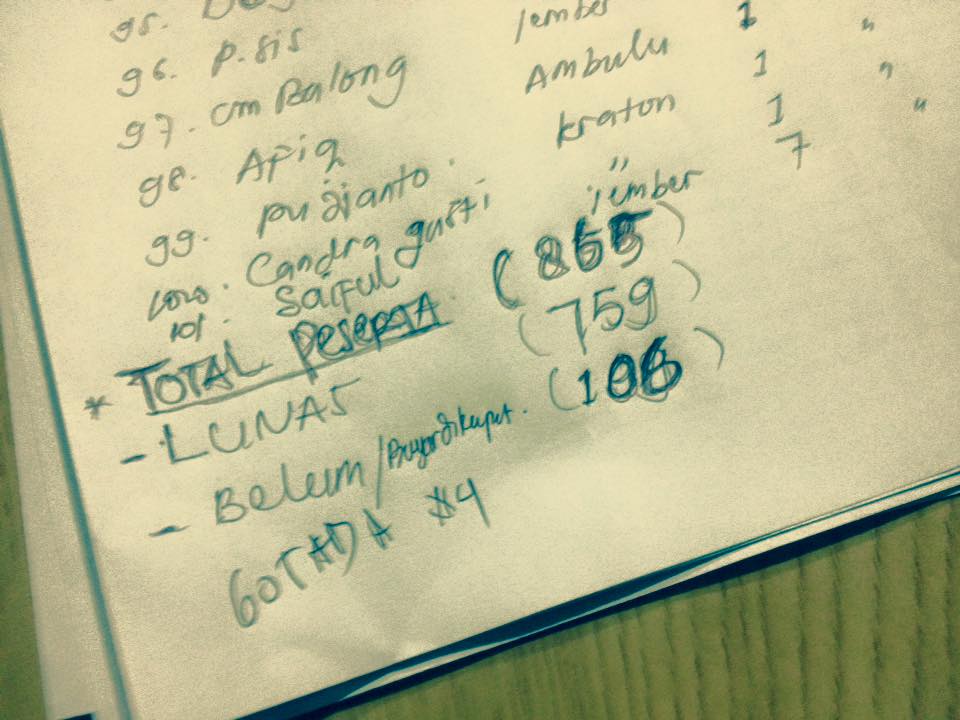 95.
96. P. sis Jember 1 "
97. cm Balong Ambulu 1 "
98. Afiq kraton 1 "
99. pudianto " 7
100. Candra gusti jember
101. Saiful
* TOTAL Pesepaa (865)
- LUNAS (759)
- Belum / (106)
GOTADA #4